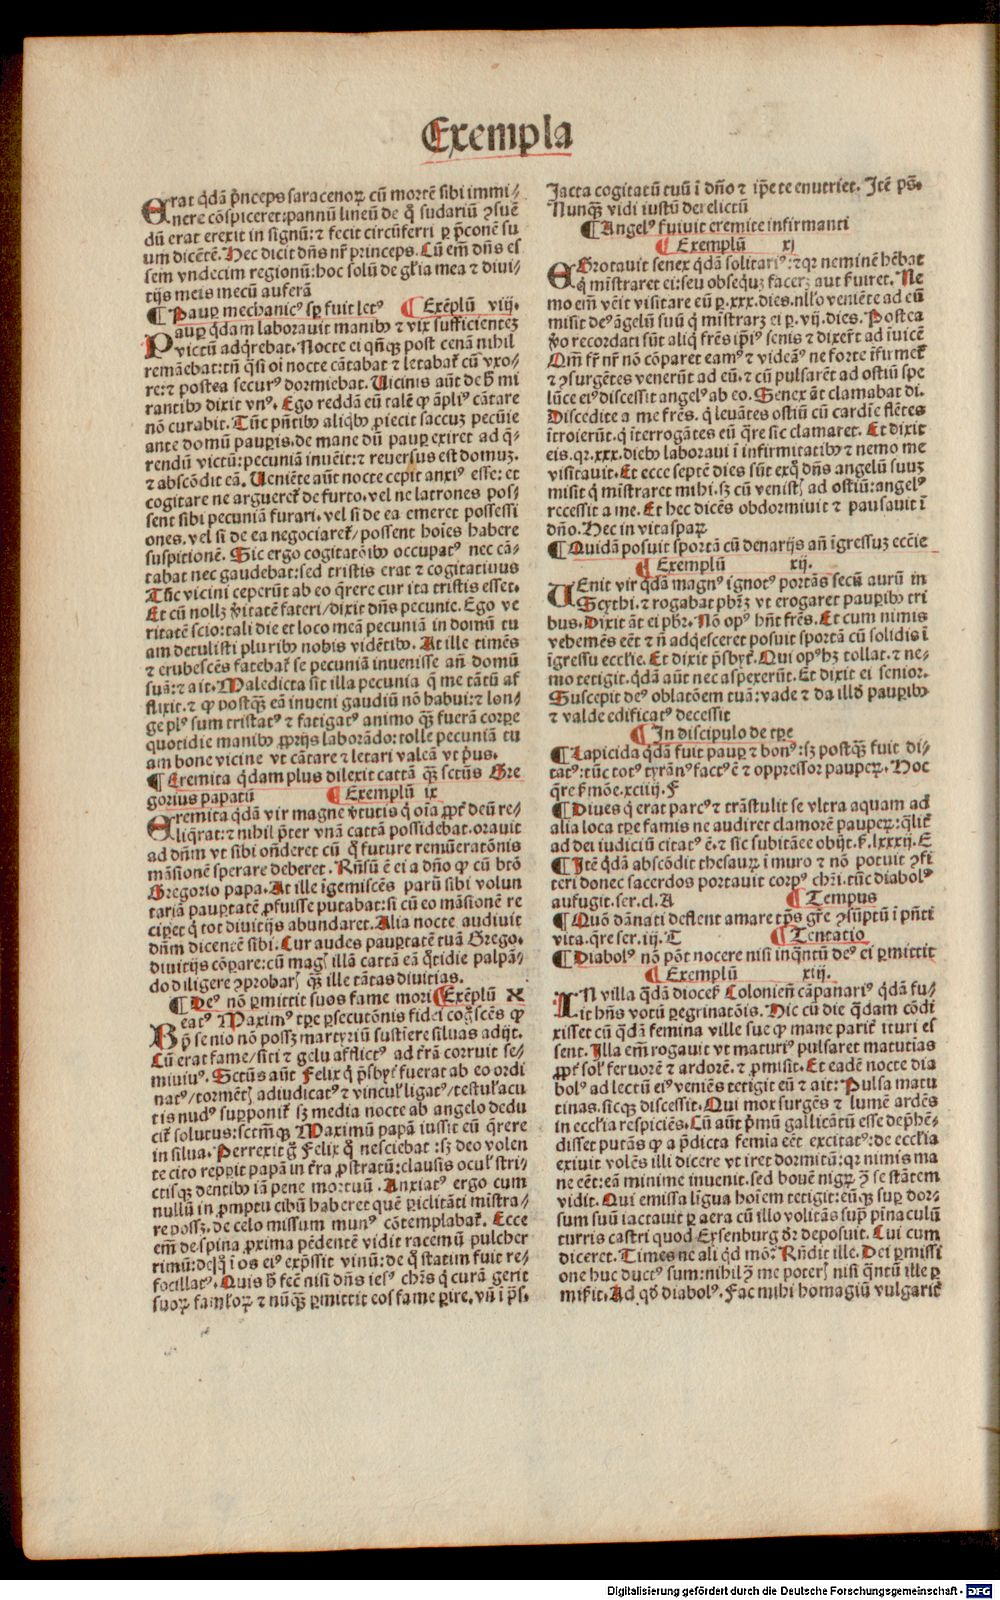 Exempla
Erat qdā p̄nceps saracenoꝝ cū mortē sibi immi⸗
nere cōspiceret:pannū lineū de q̊ sudariū ꝯsuē
dū erat erexit in signū:⁊ fecit circūferri ꝑ p̄conē su
um dicētē.Hec dicit dn̄s nr̄ princeps.Cū em̄ dn̄s es
sem vndecim regionū:hoc solū de gl̓ia mea ⁊ diui⸗
tijs meis mecū auferā
¶ Pauꝑ mechanicꝰ sꝑ fuit letꝰ ¶ Exēplū viij.
Pauꝑ qdam laborauit manibꝰ ⁊ vix sufficientez
victū adqrebat.Nocte ei qn̄qꝫ post cenā nihil
remāebat:tn̄ qsi oi nocte cātabat ⁊ letabat᷑ cū vxo⸗
re:⁊ postea securꝰ dormiebat.Uicinis aūt de h̓ mi
rantibꝰ dixit vnꝰ.Ego reddā eū talē ꝙ āpliꝰ cātare
nō curabit.Tūc pn̄tibꝰ aliqbꝰ ꝓiecit saccuꝫ pecūie
ante domū pauꝑis.de mane dū pauꝑ exiret ad q⸗
rendū victū:pecuniā inuēit:⁊ reuersus est domuꝫ.
⁊ abscōdit eā.Ueniēte aūt nocte cepit anxiꝰ esse:et
cogitare ne argueret᷑ de furto.vel ne latrones pos⸗
sent sibi pecuniā furari.vel si de ea emeret possessi
ones.vel si de ea negociaret᷑/possent hoīes habere
suspitionē.Sic ergo cogitatōibꝰ occupatꝰ nec cā⸗
tabat nec gaudebat:sed tristis erat ⁊ cogitatiuus
Tūc vicini ceperūt ab eo q̄rere cur ita tristis esset.
Et cū nollꝫ v̓itatē fateri/dixit dn̄s pecunie.Ego ve
ritatē scio:tali die et loco meā pecuniā in domū tu
am detulisti pluribꝰ nobis vidētibꝰ.At ille timēs
⁊ erubescēs fatebat᷑ se pecuniā inuenisse an̄ domū
suā:⁊ ait.Maledicta sit illa pecunia q̄ me tātū af
flixit.⁊ ꝙ postqꝫ eā inueni gaudiū nō habui:⁊ lon⸗
ge plꝰ sum tristatꝰ ⁊ fatigatꝰ animo qꝫ fuerā corꝑe
quotidie manibꝰ ꝓprijs laborādo:tolle pecuniā tu
am bone vicine vt cātare ⁊ letari valeā vt pͥus.
¶ Eremita qdam plus dilexit cattā qꝫ sctūs Gre
gorius papatū ¶ Exemplū ix
Eremita qdā vir magne v̓tutis q̇ oīa ꝓpt̓ deū re⸗
liqrat:⁊ nihil p̄ter vnā cattā possidebat.orauit
ad dn̄m vt sibi on̄deret cū q̊ future remūeratōnis
māsionē sperare deberet.Rn̄sū ē ei a dn̄o ꝙ cū btō
Gregorio papa.At ille īgemiscēs parū sibi volun
tariā pauꝑtatē ꝓfuisse putabat:si cū eo māsionē re
ciꝑet q̇ tot diuitijs abundaret.Alia nocte audiuit
dn̄m dicentē sibi.Cur audes pauꝑtatē tuā Grego.
diuitijs cōꝑare:cū magꝭ illā cattā eā qtidie palpā⸗
do diligere ꝯprobarꝭ qꝫ ille tātas diuitias.
¶ Deꝰ nō ꝑmittit suos fame mori ¶ Exēplū x
Beatꝰ Maximꝰ tꝑe ꝑsecutōnis fidei cogͣscēs ꝙ
p̄ senio nō possꝫ martyriū sustiere siluas adijt.
Cū erat fame/siti ⁊ gelu afflictꝰ ad t̓rā corruit se⸗
miuiuꝰ.Sctūs aūt Felix q̇ p̄sbyt̓ fuerat ab eo ordi
natꝰ/tormētꝭ adiudicatꝰ ⁊ vincul̓ ligatꝰ/testul̓acu
tis nudꝰ supponit᷑ sꝫ media nocte ab angelo dedu
cit᷑ solutus:sctm̄qꝫ Maximū papā iussit eū q̄rere
in silua.Perrexit g̊ Felix q̊ nesciebat :sꝫ deo volen
te cito repꝑit papā in t̓ra ꝓstratū:clausis ocul̓ stri⸗
ctisqꝫ dentibꝰ iā pene mortuū.Anxiatꝰ ergo cum
nullū in ꝓmptu cibū haberet quē ꝑiclitāti mistra⸗
re possꝫ.de celo missum munꝰ cōtemplabat᷑.Ecce
em̄ de spina ꝓxima pēdentē vidit racemū pulcher
rimū:deqꝫ ī os eiꝰ exp̄ssit vinū:de q̊ statim fuit re⸗
focillatꝰ.Quis h̓ fec̄ nisi dn̄s iesꝰ chr̄s q̇ curā gerit
suoꝝ famloꝝ ⁊ nūqꝫ ꝑmittit eos fame ꝑire.vn̄ ī p̄s.
Iacta cogitatū tuū ī dn̄o ⁊ ip̄e te enutriet.Itē ps̄.
Nunqꝫ vidi iustū derelictū
¶ Angelꝰ ẜuiuit eremite infirmanti
¶ Exemplū xj
EGrotauit senex qdā solitariꝰ:⁊qꝛ neminē hēbat
q̇ mīstraret ei:seu obsequꝫ facerꝫ aut ẜuiret.Ne
mo em̄ vēit visitare eū ꝑ.xxx.dies.nll̓o veniēte ad eū
misit deꝰ āgelū suū q̇ mīstrarꝫ ei ꝑ.vij.dies.Postea
v̓o recordati sūt aliq̇ fr̄es ip̄iꝰ senis ⁊ dixer̄t ad īuicē
Qm̄ fr̄ nr̄ nō cōparet eamꝰ ⁊ videāꝰ ne forte īfirmet᷑
⁊ ꝯsurgētes venerūt ad eū.⁊ cū pulsarēt ad ostiū spe
lūce eiꝰ discessit angelꝰ ab eo.Senex āt clamabat di.
Discedite a me fr̄es.q̇ leuātes ostiū cū cardīe flētes
ītroierūt.q̇ īterrogātes eū q̄re sic clamaret.Et dixit
eis.qꝛ.xxx.diebꝰ laboraui ī infirmitatibꝰ ⁊ nemo me
visitauit.Et ecce septē dies sūt exq̊ dn̄s angelū suuꝫ
misit q̇ mīstraret mihi.sꝫ cū venistꝭ ad ostiū:angelꝰ
recessit a me.Et hec dicēs obdormiuit ⁊ pausauit ī
dn̄o.Hec in vitaspaꝝ
¶ Quidā posuit sportā cū denarijs an̄ īgressuꝫ eccl̓ie
¶ Exemplū xij.
UEnit vir qdā magnꝰ ignotꝰ portās secū aurū in
Scythi.⁊ rogabat pbr̄ꝫ vt erogaret pauꝑibꝰ tri
bus.Dixit āt ei pbr̄.Nō opꝰ hn̄t fr̄es.Et cum nimis
vehemēs eēt ⁊ n̄ adqesceret posuit sportā cū solidis ī
īgressu eccl̓ie.Et dixit p̄sbyt̓.Qui opꝰ hꝫ tollat.⁊ ne⸗
mo tetigit.qdā aūt nec aspexerūt.Et dixit ei senior.
Suscepit deꝰ oblatōem tuā:vade ⁊ da illd̓ pauꝑibꝰ
⁊ valde edificatꝰ decessit
¶ In discipulo de tꝑe
¶ Lapicida qdā fuit pauꝑ ⁊ bonꝰ:sꝫ postqꝫ fuit di⸗
tatꝰ:tūc totꝰ tyrānꝰ factꝰ ē ⁊ oppressor pauperꝝ.Hoc
q̄re ẜmōe.xciiij.F
¶ Diues q̇ erat parcꝰ ⁊ trāstulit se vltra aquam ad
alia loca tꝑe famis ne audiret clamorē pauperꝝ:qlit̓
ad dei iudiciū citatꝰ ē.⁊ sic subitāee obijt.ẜ.lxxxij.E
¶ Itē qdā abscōdit thesauꝝ ī muro ⁊ nō potuit ꝯfi
teri donec sacerdos portauit corpꝰ chr̄i.tūc diabolꝰ
aufugit.ser.cl.A ¶ Tempus
¶ Quō dānati deflent amare tp̄s gr̄e ꝯsūptū ī pn̄ti
vita.q̄re ser.iij.T ¶ Tentatio
¶ Diabolꝰ nō pōt nocere nisi inqntū deꝰ ei ꝑmittit
¶ Exemplū xiij.
IN villa qdā dioceẜ Colonien̄ cāpanariꝰ qdā fu⸗
it hn̄s votū ꝑegrinatōis.Hic cū die qdam cōdi
xisset cū qdā femina ville sue ꝙ mane parit᷑ ituri es
sent.Illa em̄ rogauit vt maturiꝰ pulsaret matutias
ꝓpt̓ sol̓ feruorē ⁊ ardorē.⁊ ꝓmisit.Et eadē nocte dia
bolꝰ ad lectū eiꝰ veniēs tetigit eū ⁊ ait:Pulsa matu
tinas.sicqꝫ discessit.Qui mox surgēs ⁊ lumē ardēs
in eccl̓ia respiciēs.Cū aūt pͥmū gallicātū esse dep̄hē⸗
disset putās ꝙ a p̄dicta femia eēt excitatꝰ:de eccl̓ia
exiuit volēs illi dicere vt iret dormitū:qꝛ nimis ma
ne eēt:eā minime inuenit.sed bouē nigꝝ p̄ se stātem
vidit.Qui emissa līgua hoīem tetigit:eūqꝫ suꝑ dor⸗
sum suū iactauit ꝑ aera cū illo volitās sup̄ pīnaculū
turris castri quod Eysenburg dr̄ deposuit.Cui cum
diceret.Times ne ali qd mō?Rn̄dit ille.Dei ꝑmissi
one huc ductꝰ sum:nihil p̄ me poterꝭ nisi qntū ille ꝑ
miẜit.Ad qd̓ diabolꝰ.Fac mihi homagiū vulgarit̓
Digitalisierung gefördert durch die Deutsche Forschungsgemeinschaft - DFG